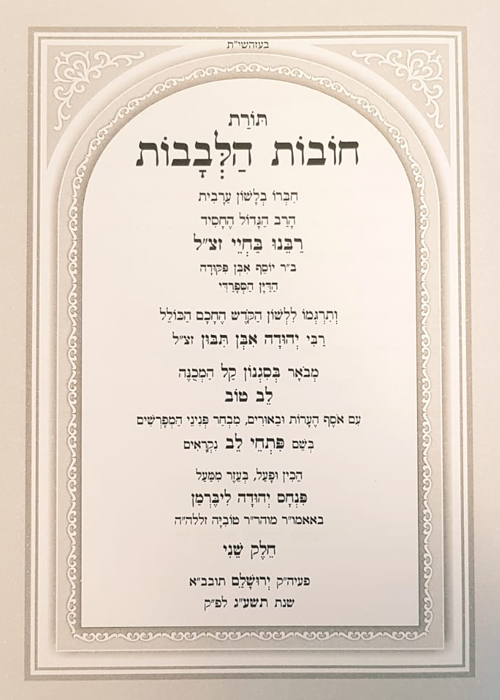 בעזהשי״ת
תּוֹרַת
חוֹבוֹת הַלְּבָבוֹת
חִבְּרוֹ בְּלָשׁוֹן עֲרָבִית
הָרַב הַגָּדוֹל הֶחָסִיד
רַבֵּנוּ בַּחְיֵי זצ״ל
ב״ר יוֹסֵף אִבְּן פְּקוּדָה
הַדַּיָּן הַסְּפָרַדִּי
וְתִרְגְּמוֹ לִלְשׁוֹן הַקֹּדֶשׁ הֶחָכָם הַכּוֹלֵל
רַבִּי יְהוּדָה אִבְּן תִּבּוֹן זצ״ל
מְבֹאָר בְּסִגְנוֹן קַל הַמְכֻנֶּה
לֵב טוֹב
עִם אֹסֶף הֶעָרוֹת וּבֵאוּרִים, מִבְחַר פְּנִינֵי הַמְפָרְשִׁים
בְּשֵׁם פִּתְחֵי לֵב נִקְרָאִים
הֵכִין וּפָעַל, בְּעֵזֶר מִמַּעַל
פִּנְחָס יְהוּדָה לִיבֶּרְמַן
באאמו״ר מוהר״ר טוֹבִיָּה זללה״ה
חֵלֶק שֵׁנִי
פעיה״ק יְרוּשָׁלַיִם תובב״א
שנת תשע״ג לפ״ק